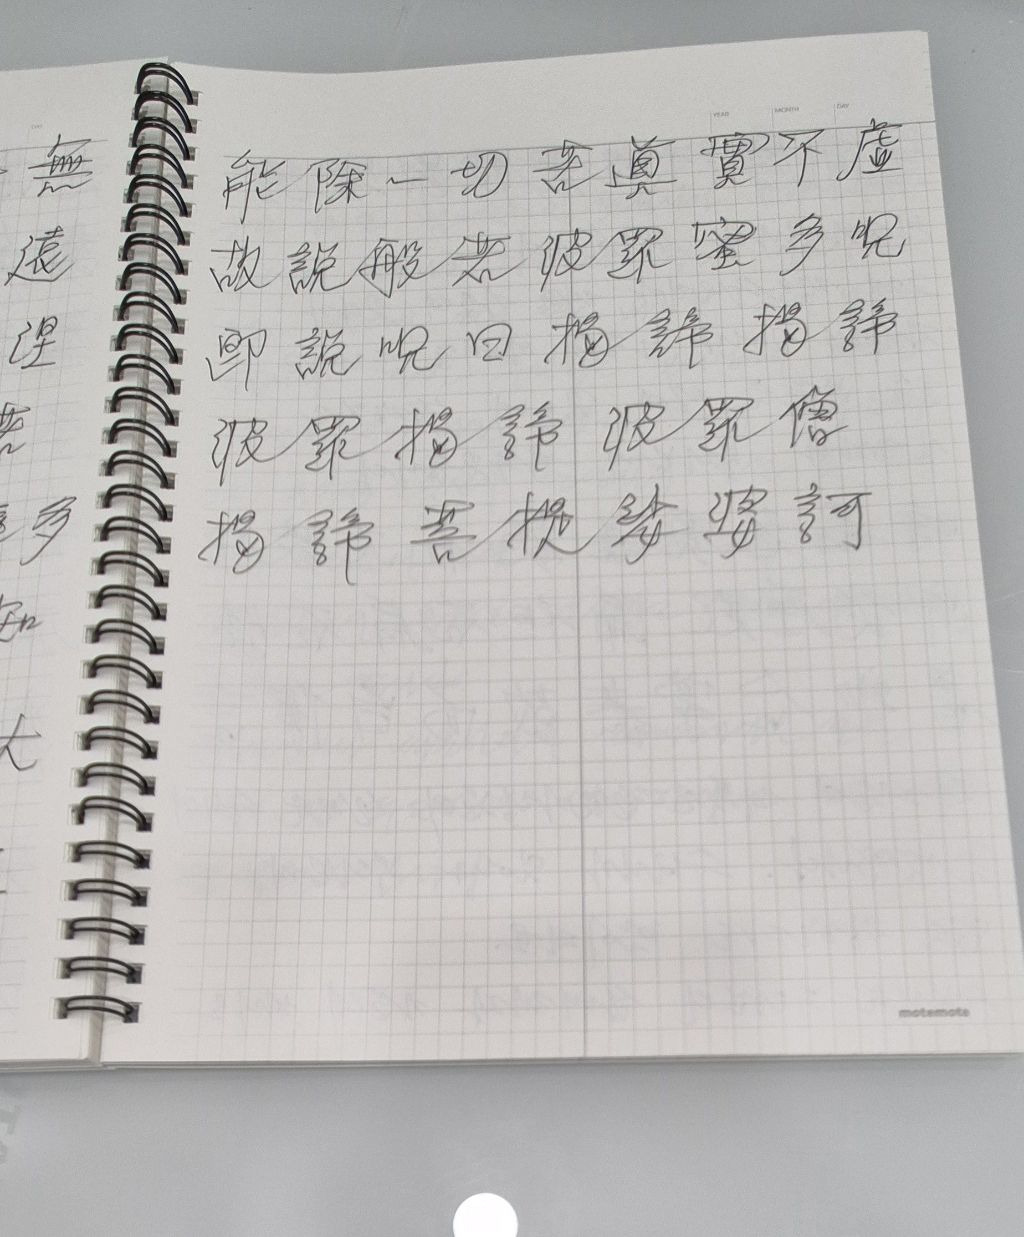 YEAR MONTH DAY
能除一切苦真實不虛
故說般若波羅蜜多呪
即說呪曰揭諦揭諦
波羅揭諦波羅僧
揭諦菩提娑婆訶
無
遠
涅
若
多
知
大
motemote